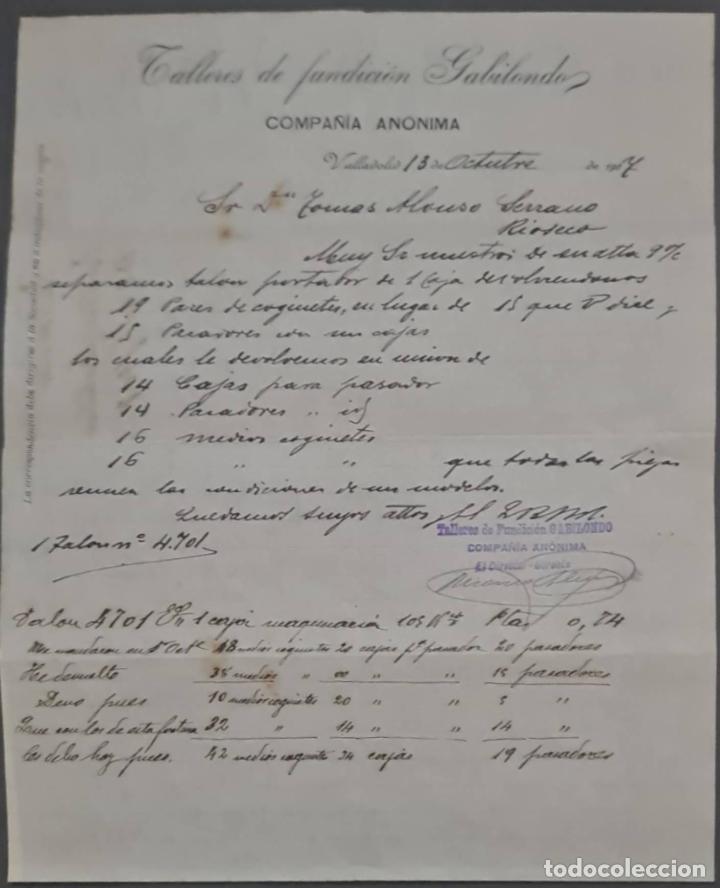 Talleres de fundición Gabilondo
COMPAÑIA ANONIMA
Valladolid 13 de Octubre de 190
Sr Dn Tomas Alonso Serrano
Rioseco
Muy Sr nuestro:
separamos talon portador de 1 Caja devolviendonos
19 Pares de coginetes, en lugar de 15 que V dice, y
15 Pasadores con sus cajas
los cuales le devolvemos en union de
14 Cajas para pasador
14 Pasadores " id
16 medios coginetes
16 " " que todas las piezas
reunen las condiciones de sus modelos.
Quedamos suyos attos
Talleres de Fundición GABILONDO
COMPAÑIA ANÓNIMA
El Director - Gerente
1 Talon nº 4.701
La correspondencia debe dirigirse a la Sociedad y no a
Talon 4701 1 caja maquinaria 105 Ks Ptas 0,74
Me mandaron en 5 Octe 48 medios coginetes 20 cajas pa pasador 20 pasadores
He devuelto 38 medios " 00 " " 15 pasadores
Devo pues 10 medios coginetes 20 " " 5 "
Que con los de esta fortuna 32 " 14 " " 14 "
les debo hoy pues. 42 medios coginetes 34 cajas 19 pasadores
todocoleccion